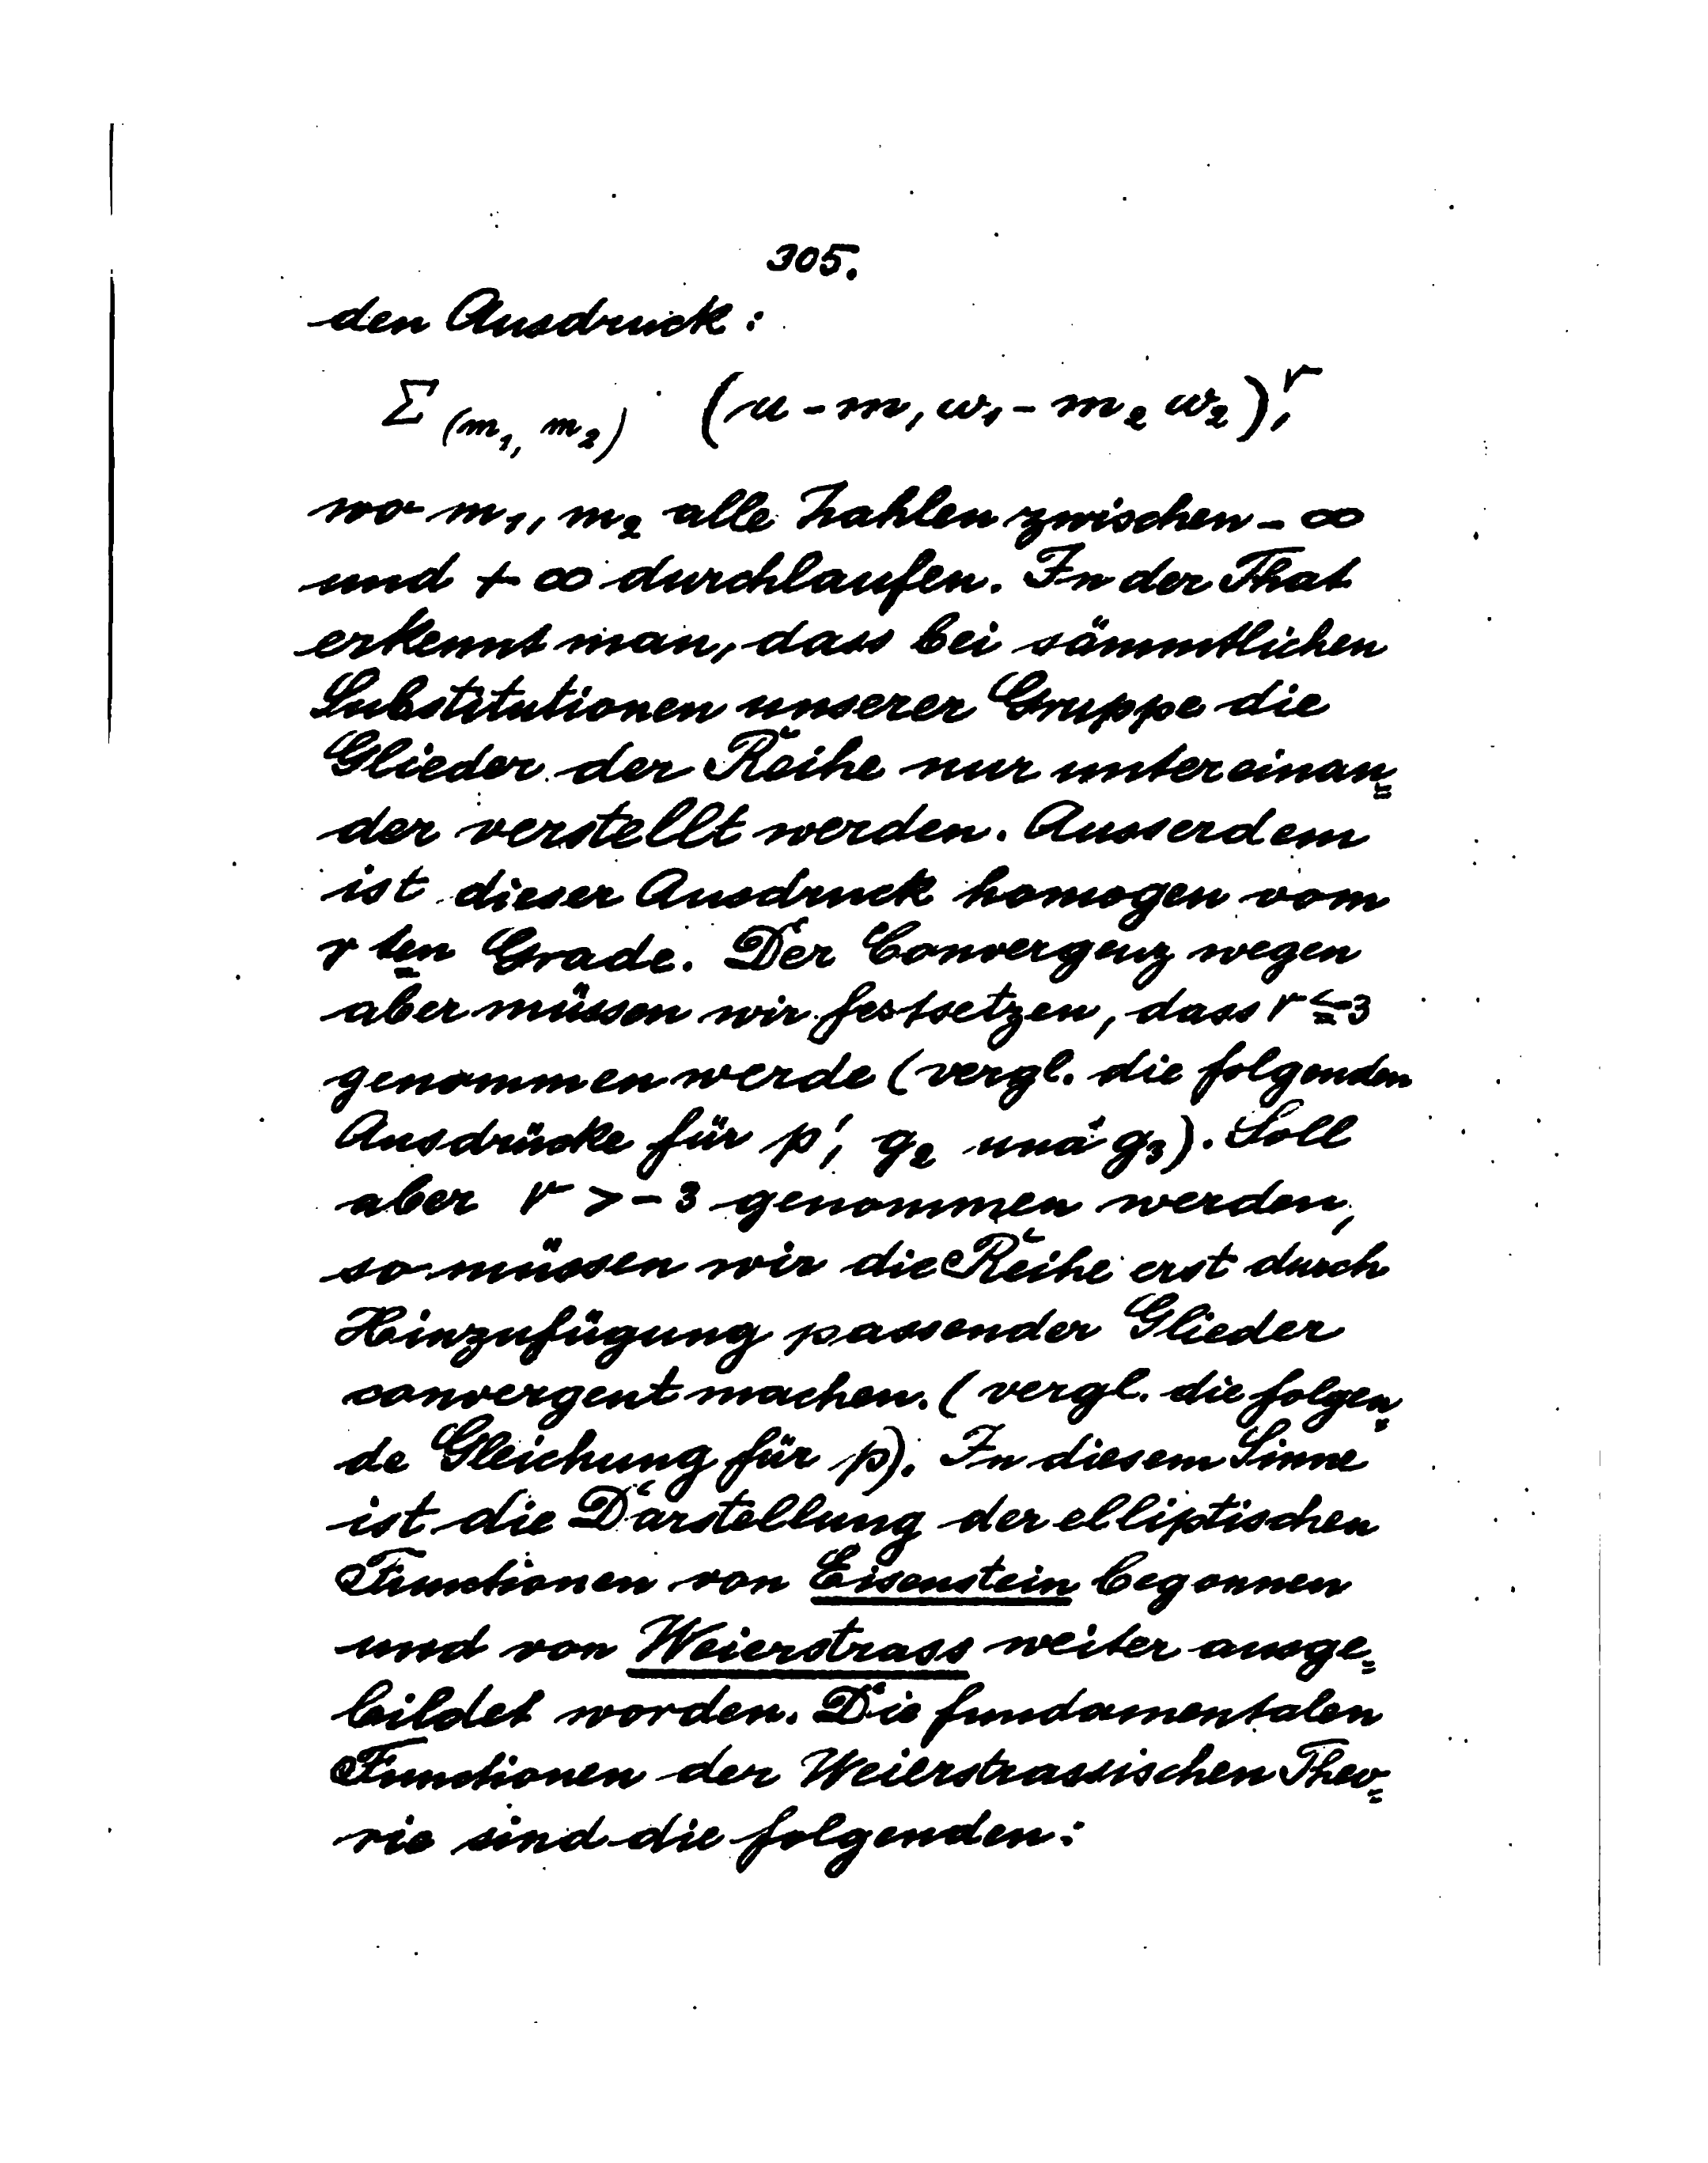 305.
den Ausdruck:
Σ (m₁, m₂) (u - m₁ ω₁ - m₂ ω₂)ʳ,
wo m₁, m₂ alle Zahlen zwischen - ∞
und + ∞ durchlaufen. In der That
erkennt man, dass bei sämmtlichen
Substitutionen unserer Gruppe die
Glieder der Reihe nur untereinan=
der verstellt werden. Ausserdem
ist dieser Ausdruck homogen vom
r ten Grade. Der Convergenz wegen
aber müssen wir festsetzen, dass r ≦ -3
genommen werde (vergl. die folgenden
Ausdrücke für p', g₂ und g₃). Soll
aber r > - 3 genommen werden,
so müssen wir die Reihe erst durch
Hinzufügung passender Glieder
convergent machen. (vergl. die folgen=
de Gleichung für p). In diesem Sinne
ist die Darstellung der elliptischen
Functionen von Eisenstein begonnen
und von Weierstrass weiter ausge=
bildet worden. Die fundamentalen
Functionen der Weierstrassischen Theo=
rie sind die folgenden: